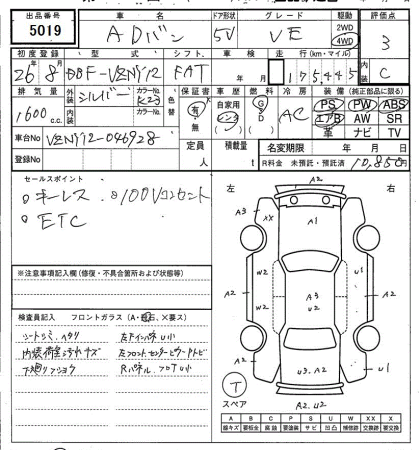 出品番号 車名 ドア形状 グレード 駆動 評価点
5019 ADバン 5V VE 2WD 4WD 3
初度登録 型式 シフト 車検 走行(km・マイル) 内装
26年8月 DBF-VZNY12 FAT 年 月 175,445 C
排気量 外装 シルバー カラーNo. K23 色替 保証書 車歴 燃料 冷房 装備(純正部品に限る)
1600 c.c. 内装 カラーNo. 有・無 自家用 レンタ G D AC PS PW ABS
エアB AW SR
革 ナビ TV
車台No VZNY12-046928 定員 人 積載量 t 名変期限 年 月 日
登録No R料金 未預託・預託済 10,850円
セールスポイント
キーレス 100Vコンセント
ETC
左 右
A2
A3 XX A1
W2 W2 U1
A2 A3 U2 A2
A2 U3.A2 U1
A2.U2
※注意事項記入欄(修復・不具合箇所および状態等)
検査員記入 フロントガラス(A・飛石・X要ス)
シートシミ、ヘタリ
内装荷室汚れキズ
下廻リフショウ
T
スペア
A B C P S U W X XX
線キズ 要板金 腐蝕 要塗装 サビ 凹凸 補修跡 交換跡 要交換